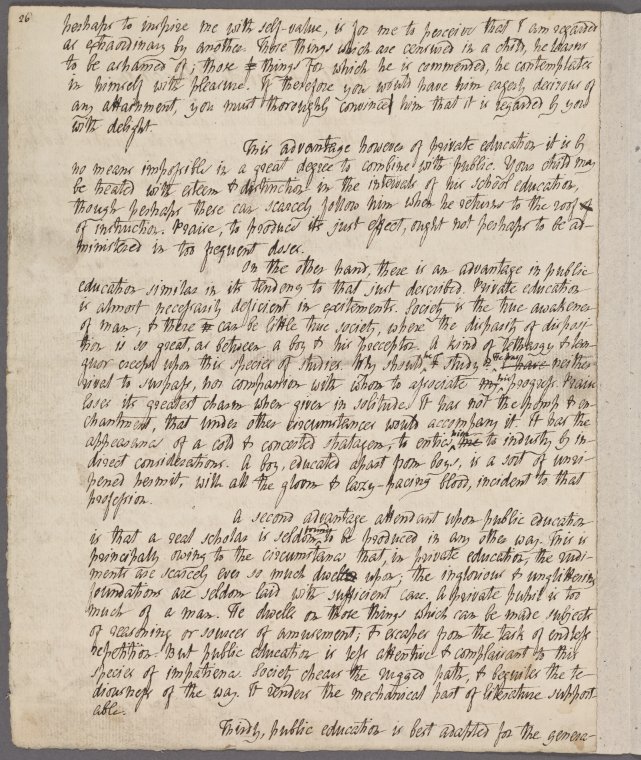 26
perhaps to inspire me with self-value, is for me to perceive that I am regarded
as extraordinary by another. Those things which are censured in a child, he learns
to be ashamed of; those things for which he is commended, he contemplates
in himself with pleasure. If therefore you would have him eagerly desirous of
any attainment, you must thoroughly convince him that it is regarded by you
with delight.
This advantage however of private education it is by
no means impossible in a great degree to combine with public. Your child may
be treated with esteem & distinction in the intervals of his school education,
though perhaps these can scarcely follow him when he returns to the roof
of instruction. Praise, to produce its just effect, ought not perhaps to be ad-
ministered in too frequent doses.
On the other hand, there is an advantage in public
education similar in its tendency to that just described. Private education
is almost necessarily deficient in excitements. Society is the true awakener
of man; & there can be little true society, where the disparity of disposi-
tion is so great, as between a boy & his preceptor. A kind of lethargy & lan-
guor creeps upon this species of studies. Why should he study? He has I have neither
rival to surpass, nor companion with whom to associate my his progress. Praise
loses its greatest charm when given in solitude. It has not the pomp & en-
chantment, that under other circumstances would accompany it. It has the
appearance of a cold & concerted stratagem, to entice me him to industry by in-
direct considerations. A boy, educated apart from boys, is a sort of unri-
pened hermit, with all the gloom & lazy-pacing blood, incident to that
profession.
A second advantage attendant upon public education
is that a real scholar is seldom found to be produced in any other way. This is
principally owing to the circumstance that, in private education, the rudi-
ments are scarcely ever so much dwelt upon; the inglorious & unglittering
foundations are seldom laid with sufficient care. A private pupil is too
much of a man. He dwells on those things which can be made subjects
of reasoning or sources of amusement; & escapes from the task of endless
repetition. But public education is less attentive & complaisant to this
species of impatience. Society chears the rugged path, & beguiles the te-
diousness of the way. It renders the mechanical part of literature support-
able.
Thirdly, public education is best adapted for the genera-